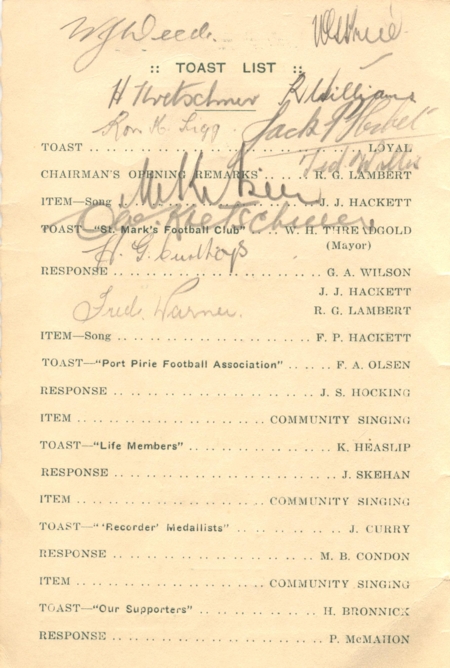 W J Weeds.
:: TOAST LIST ::
H Kretschmer R Williams
Ron K. Figg.
TOAST .. .. .. .. .. .. .. .. .. .. .. .. LOYAL
Ted Willis
CHAIRMAN'S OPENING REMARKS .. .. .. R. G. LAMBERT
ITEM—Song .. .. .. .. .. .. .. .. .. J. J. HACKETT
TOAST—"St. Mark's Football Club" .. .. W. H. THREADGOLD
(Mayor)
Geo. Kretschmer
RESPONSE .. .. .. .. .. .. .. .. .. .. G. A. WILSON
J. J. HACKETT
R. G. LAMBERT
Fred. Warner.
ITEM—Song .. .. .. .. .. .. .. .. .. F. P. HACKETT
TOAST—"Port Pirie Football Association" .. .. F. A. OLSEN
RESPONSE .. .. .. .. .. .. .. .. .. J. S. HOCKING
ITEM .. .. .. .. .. .. .. .. COMMUNITY SINGING
TOAST—"Life Members" .. .. .. .. .. .. K. HEASLIP
RESPONSE .. .. .. .. .. .. .. .. .. .. J. SKEHAN
ITEM .. .. .. .. .. .. .. .. COMMUNITY SINGING
TOAST—"'Recorder' Medallists" .. .. .. .. .. J. CURRY
RESPONSE .. .. .. .. .. .. .. .. .. M. B. CONDON
ITEM .. .. .. .. .. .. .. .. COMMUNITY SINGING
TOAST—"Our Supporters" .. .. .. .. .. H. BRONNICK
RESPONSE .. .. .. .. .. .. .. .. .. P. McMAHON